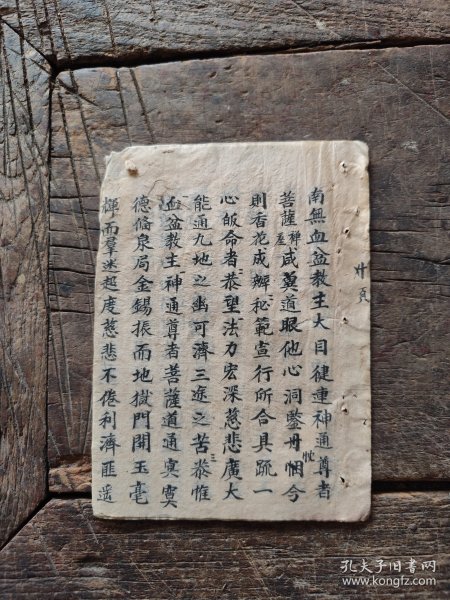 南無血盆教主大目犍連神通尊者
菩薩咸冀道眼他心洞鑒丹悃今
則香花咸辦秘範宣行所合具疏一
心皈命者恭望法力宏深慈悲廣大
能通九地之幽可濟三途之苦恭惟
血盆教主神通尊者菩薩道通寞
德俻泉局金錫振而地獄門開玉毫
輝而羣迷超度慈悲不倦利濟匪遥
廾頁
孔夫子旧书网
www.kongfz.com